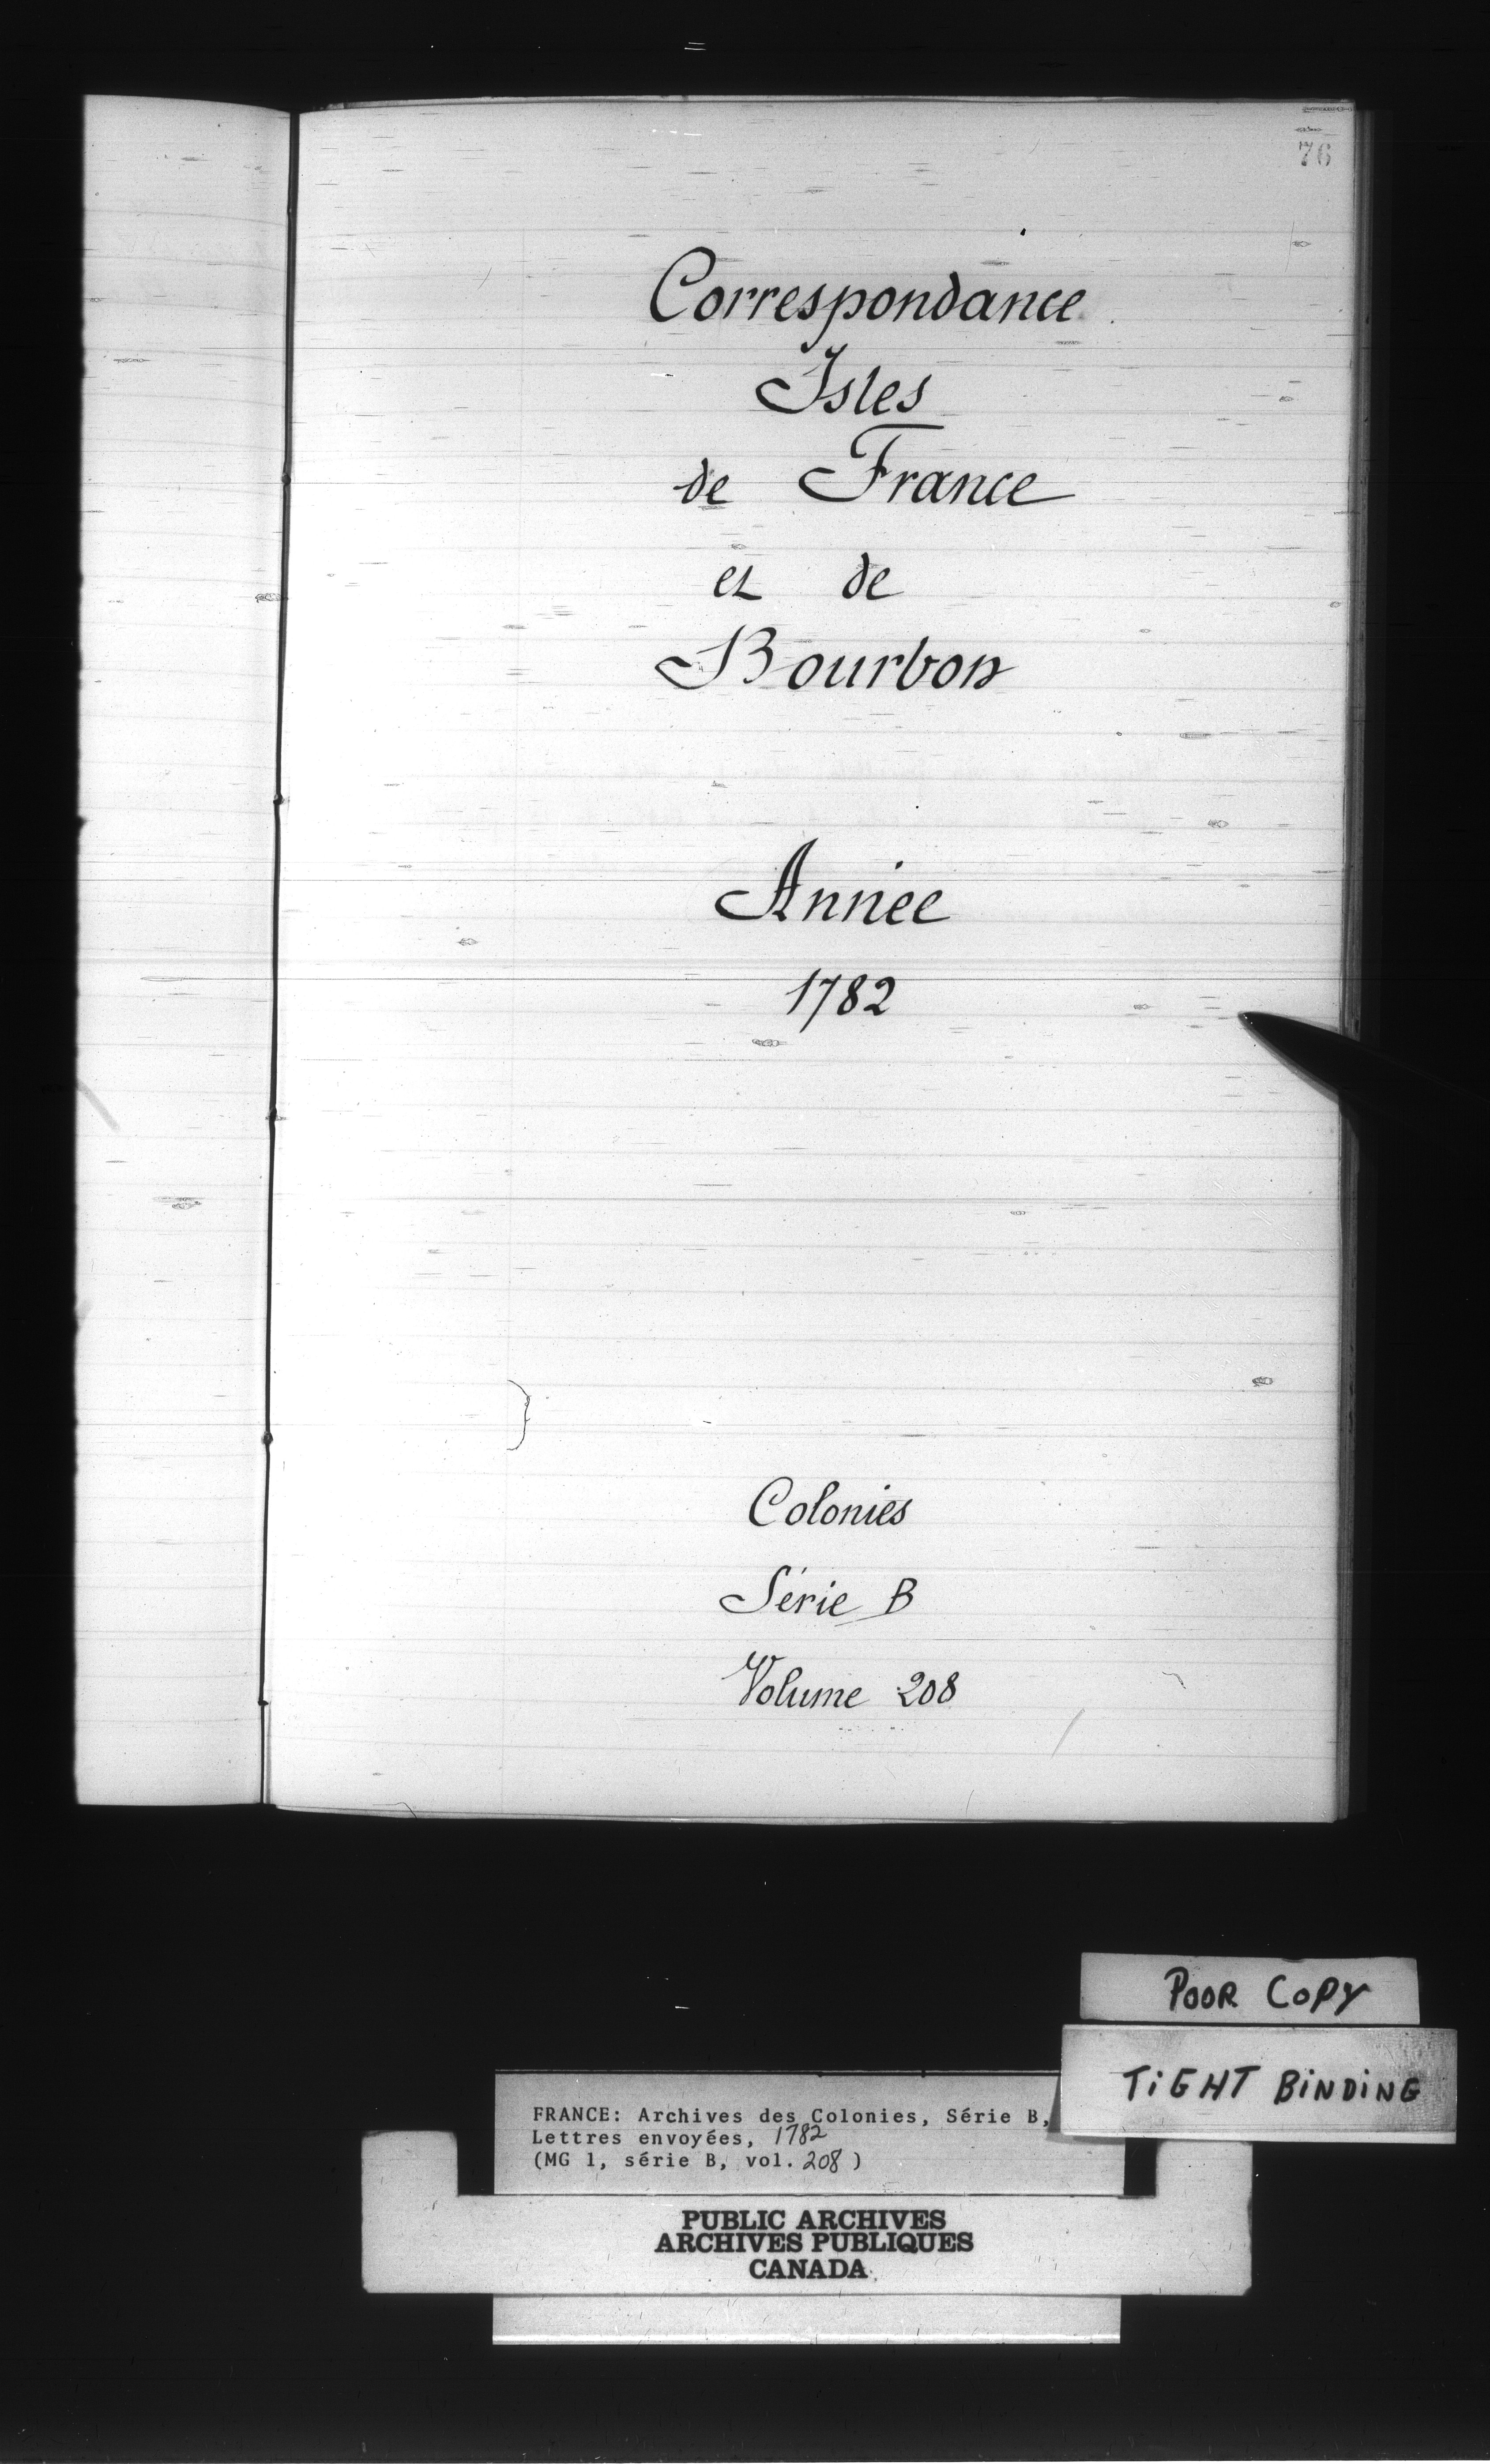 76
Correspondance
Isles
de France
et de
Bourbon
Année
1782
Colonies
Série B
Volume 208
POOR COPY
TIGHT BINDING
FRANCE: Archives des Colonies, Série B,
Lettres envoyées, 1782
(MG 1, série B, vol. 208)
PUBLIC ARCHIVES
ARCHIVES PUBLIQUES
CANADA